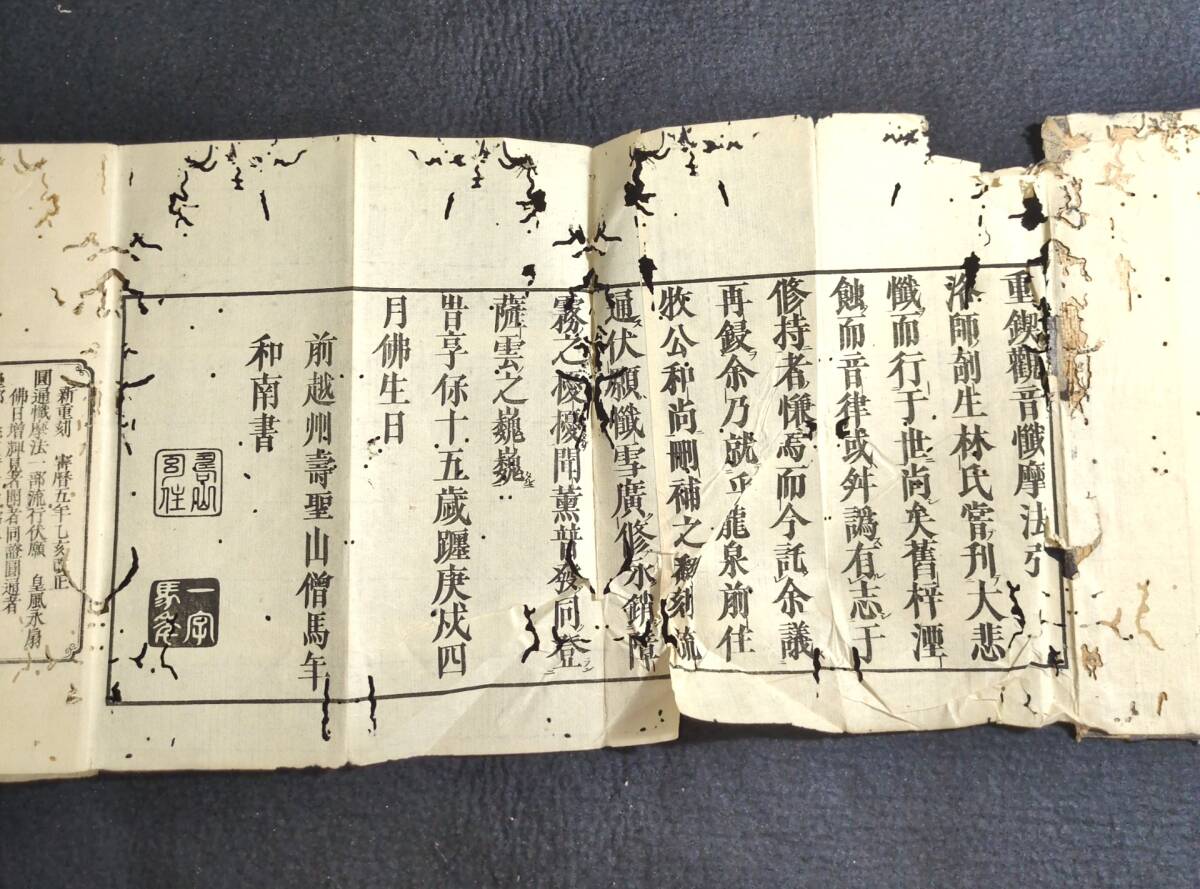 重鍥觀音懺摩法引
洛師剞生林氏嘗刊大悲
懺而行于世尚矣舊梓湮
蝕而音律或舛譌有志于
修持者慊焉而今託余議
再鋟余乃就乎龍泉前住
牧公和尚刪補之翻刻流
通伏願懺雪廣修永銷障
霧之擾擾聞薰普發同登
薩雲之巍巍
旹享保十五歲躔庚戌四
月佛生日
前越州壽聖山僧馬年
和南書
新重刻 寳曆五年乙亥改正
圓通懺摩法一部流行伏願 皇風永扇
佛日增輝見者聞者同證圓通者